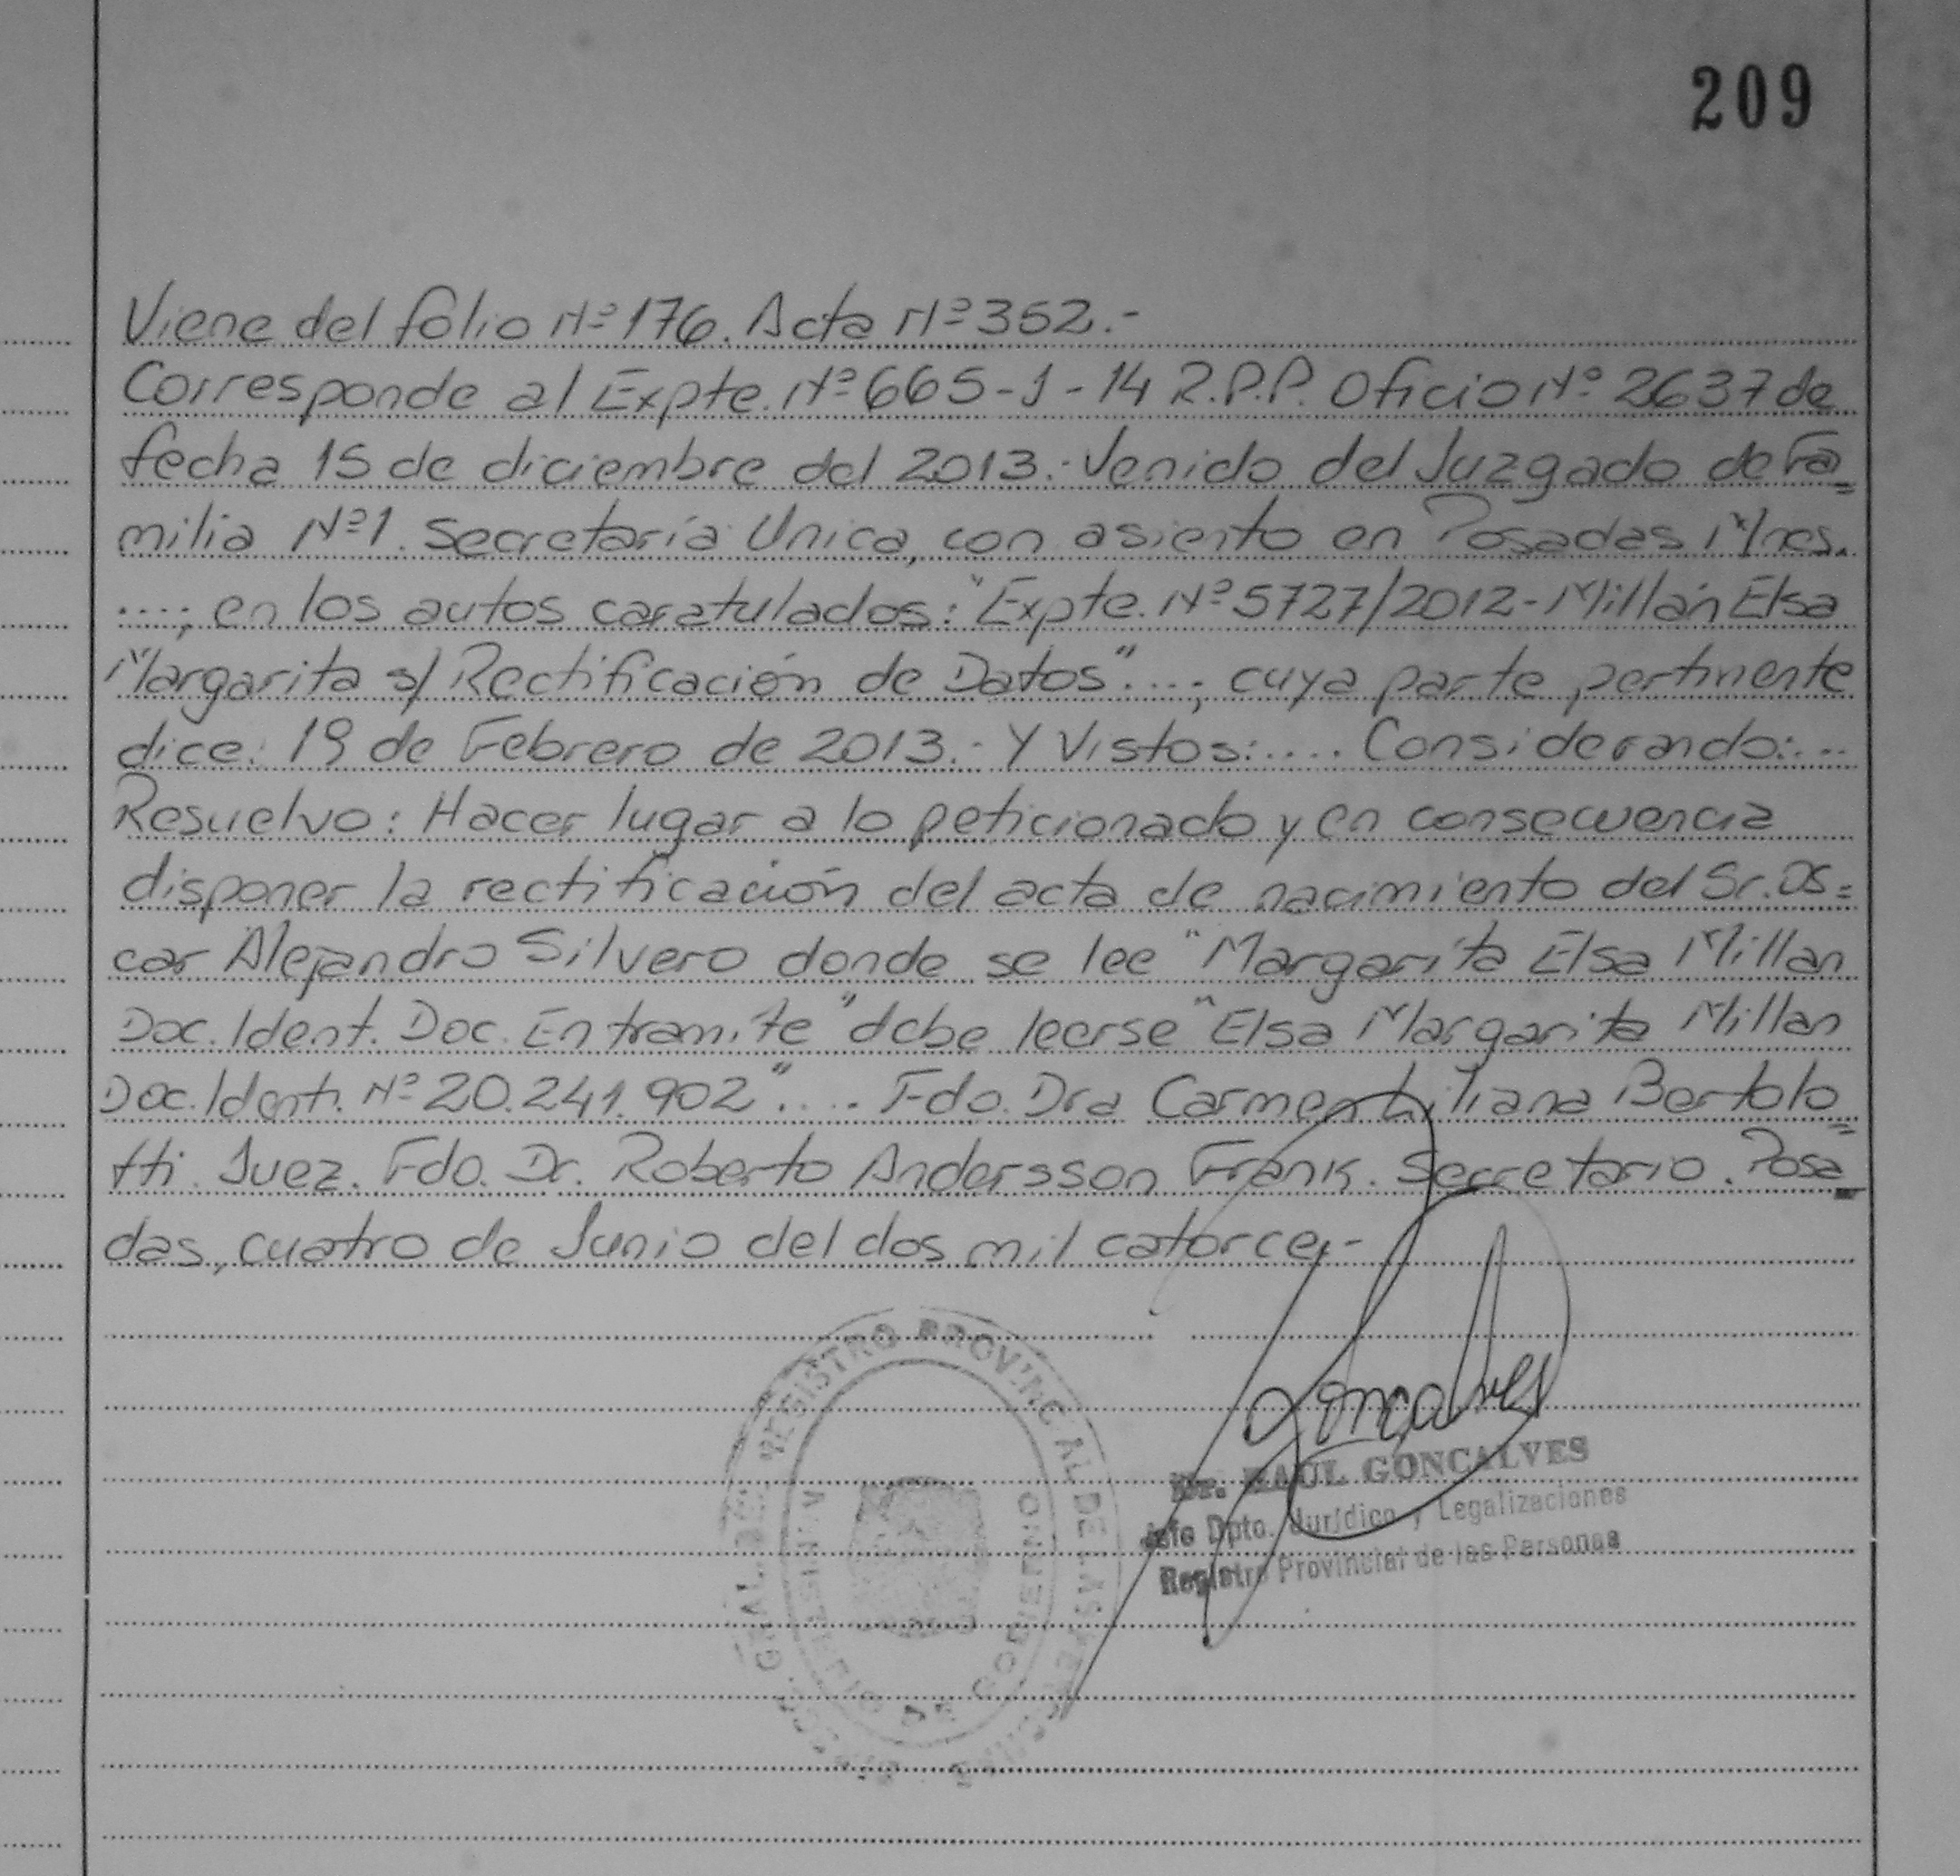 209
Viene del folio Nº 176. Acta Nº 352.-
Corresponde al Expte. Nº 665-J-14 R.P.P. Oficio Nº 2637 de
fecha 15 de diciembre del 2013.- Venido del Juzgado de Fa=
milia Nº1. Secretaría Unica, con asiento en Posadas Mnes.
....; en los autos caratulados: "Expte. Nº 5727/2012- Millán Elsa
Margarita s/ Rectificación de Datos"....; cuya parte pertinente
dice: 19 de Febrero de 2013.- Y Vistos:.... Considerando:...
Resuelvo: Hacer lugar a lo peticionado y en consecuencia
disponer la rectificación del acta de nacimiento del Sr. Os=
car Alejandro Silvero donde se lee "Margarita Elsa Millan
Doc. Ident. Doc. En tramite" debe leerse "Elsa Margarita Millan
Doc. Ident. Nº 20.241.902".... Fdo. Dra Carmen Liliana Bertolo=
tti. Juez. Fdo. Dr. Roberto Andersson Frank. Secretario. Posa=
das, cuatro de Junio del dos mil catorce.-
REGISTRO PROVINCIAL DE LAS PERSONAS
DE GOBIERNO
Goncalves
Dr. RAUL GONCALVES
Jefe Dpto. Jurídico y Legalizaciones
Registro Provincial de las Personas